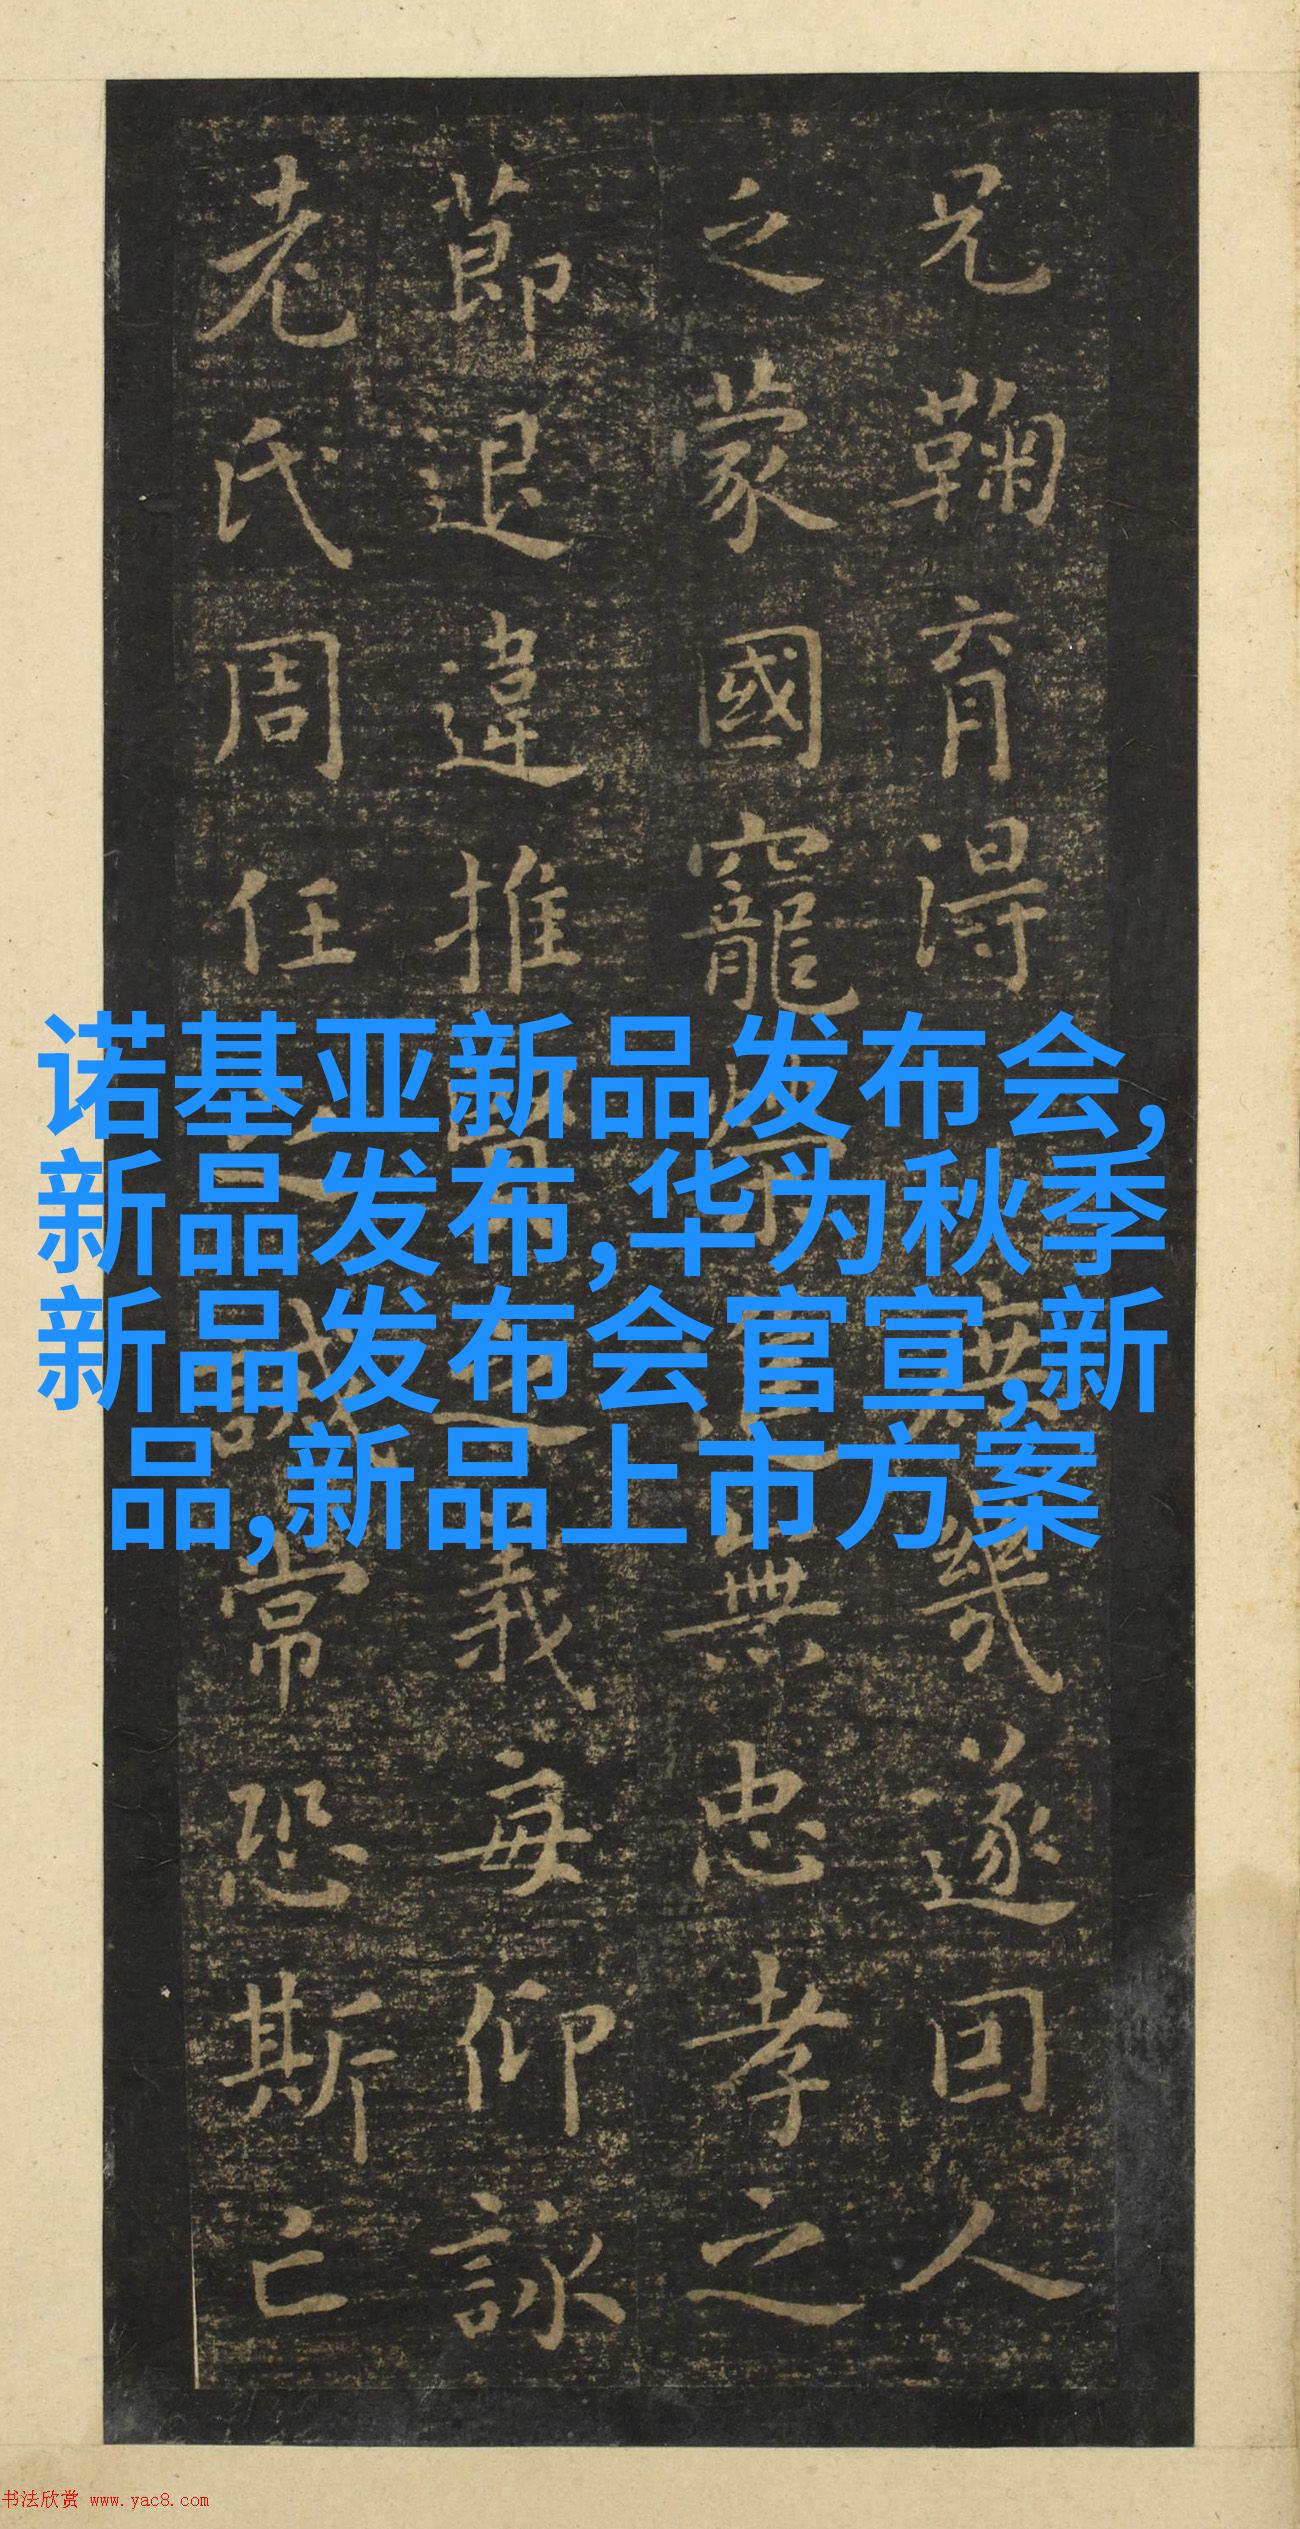 兄鞠育得庶幾遂因人
乏蒙國寵榮進無忠孝之
節退違推賢之義每仰詠
老氏周任之誡常恐斯亡
诺基亚新品发布会,
新品发布,华为秋季
新品发布会官宣,新
品,新品上市方案
书法欣赏 www.yac8.com